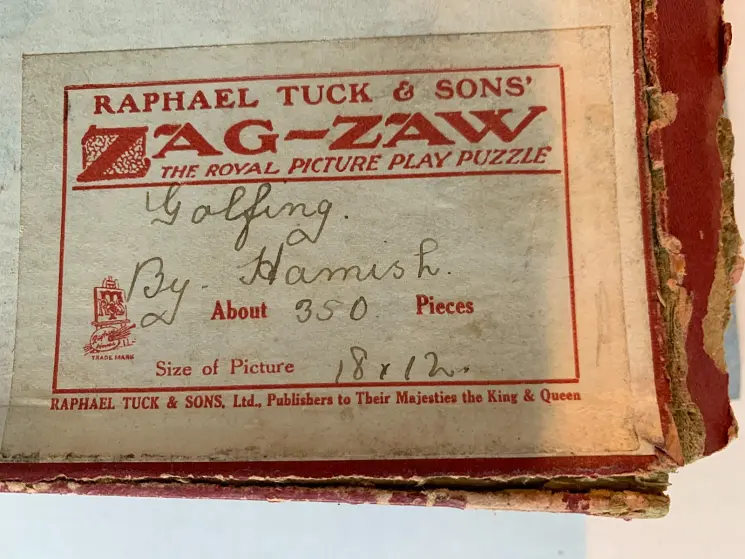 RAPHAEL TUCK & SONS'
ZAG-ZAW
THE ROYAL PICTURE PLAY PUZZLE
Golfing.
By. Hamish.
About 350 Pieces
TRADE MARK
Size of Picture 18 x 12.
RAPHAEL TUCK & SONS, Ltd., Publishers to Their Majesties the King & Queen